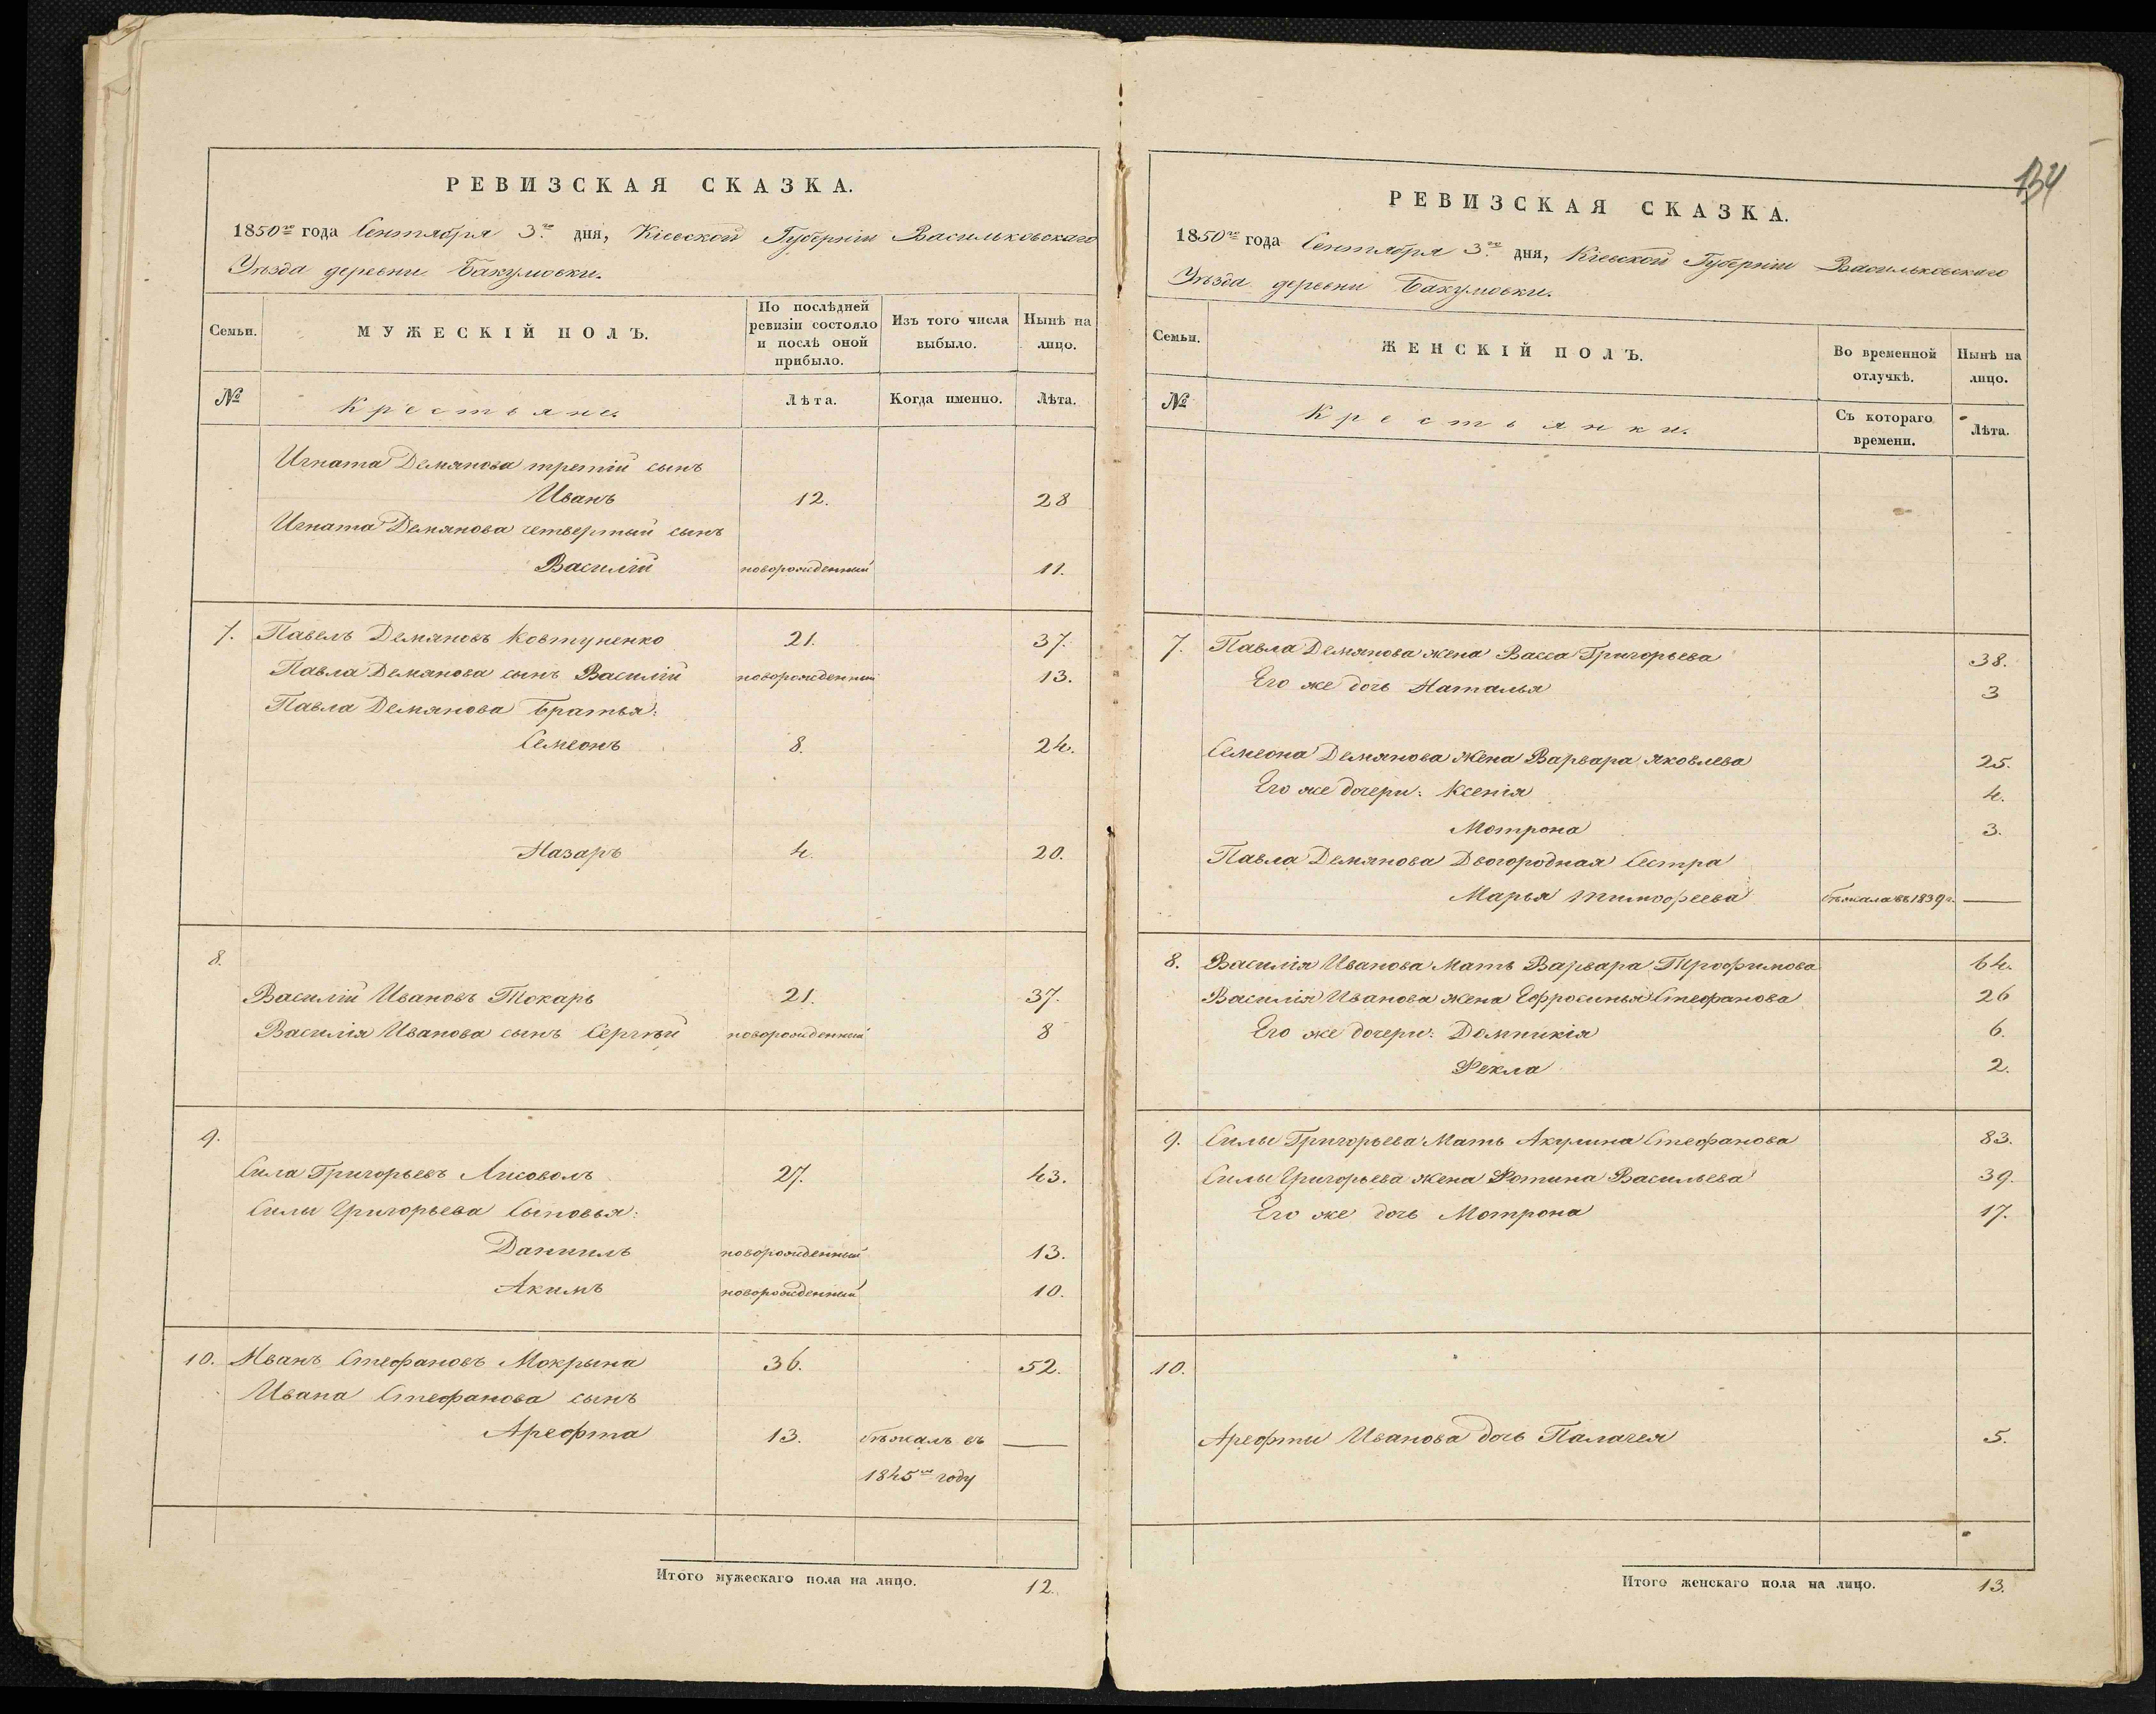 РЕВИЗСКАЯ СКАЗКА.
1850го года Сентября 3го дня, Кіевской Губерніи Васильковскаго
Уѣзда деревни Бакумовки.
Семьи.
МУЖЕСКІЙ ПОЛЪ.
По послѣдней ревизіи состояло и послѣ оной прибыло.
Изъ того числа выбыло.
Нынѣ на лицо.
№
Крестьяне.
Лѣта.
Когда именно.
Лѣта.
Игната Демянова третій сынъ
Иванъ 12. 28
Игната Демянова четвертый сынъ
Василій новорожденный 11.
7. Павелъ Демяновъ Ковтуненко 21. 37.
Павла Демянова сынъ Василій новорожденный 13.
Павла Демянова Братья:
Семеонъ 8. 24.
Назаръ 4. 20.
8.
Василій Ивановъ Токарь 21. 37.
Василія Иванова сынъ Сергѣй новорожденный 8
9.
Сила Григорьевъ Лисоволъ 27. 43.
Силы Григорьева Сыновья:
Даниилъ новорожденный 13.
Акимъ новорожденный 10.
10. Иванъ Стефановъ Мокрына 36. 52.
Ивана Стефанова сынъ
Арефта 13. бѣжалъ въ —
1845мъ году
Итого мужескаго пола на лицо. 12.
134
РЕВИЗСКАЯ СКАЗКА.
1850го года Сентября 3го дня, Кіевской Губерніи Васильковскаго
Уѣзда деревни Бакумовки.
Семьи.
ЖЕНСКІЙ ПОЛЪ.
Во временной отлучкѣ.
Нынѣ на лицо.
№
Крестьянки.
Съ котораго времени.
Лѣта.
7. Павла Демянова жена Васса Григорьева 38.
Его же дочь Наталья 3
Семеона Демянова жена Варвара Яковлева 25.
Его же дочери: Ксенія 4.
Мотрона 3.
Павла Демянова Двогородная Сестра
Марья Тимофеева бѣжала въ 1839 г. —
8. Василія Иванова Мать Варвара Трофимова 64.
Василія Иванова жена Ефросинья Стефанова 26
Его же дочери: Домникія 6.
Фекла 2.
9. Силы Григорьева Мать Акулина Стефанова 83.
Силы Григорьева жена Фотина Васильева 39.
Его же дочь Мотрона 17.
10.
Арефты Иванова дочь Палагея 5.
Итого женскаго пола на лицо. 13.